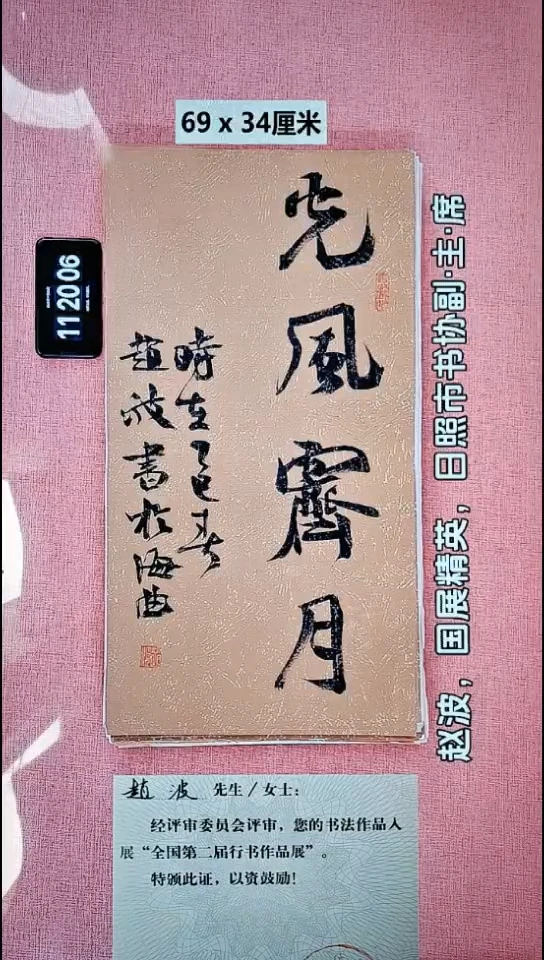 69 x 34厘米
光風霽月
時在乙巳春
趙波書於海曲
11 20 06
赵波，国展精英，日照市书协副·主·席
趙波 先生／女士：
经评审委员会评审，您的书法作品入
展“全国第二届行书作品展”。
特颁此证，以资鼓励！